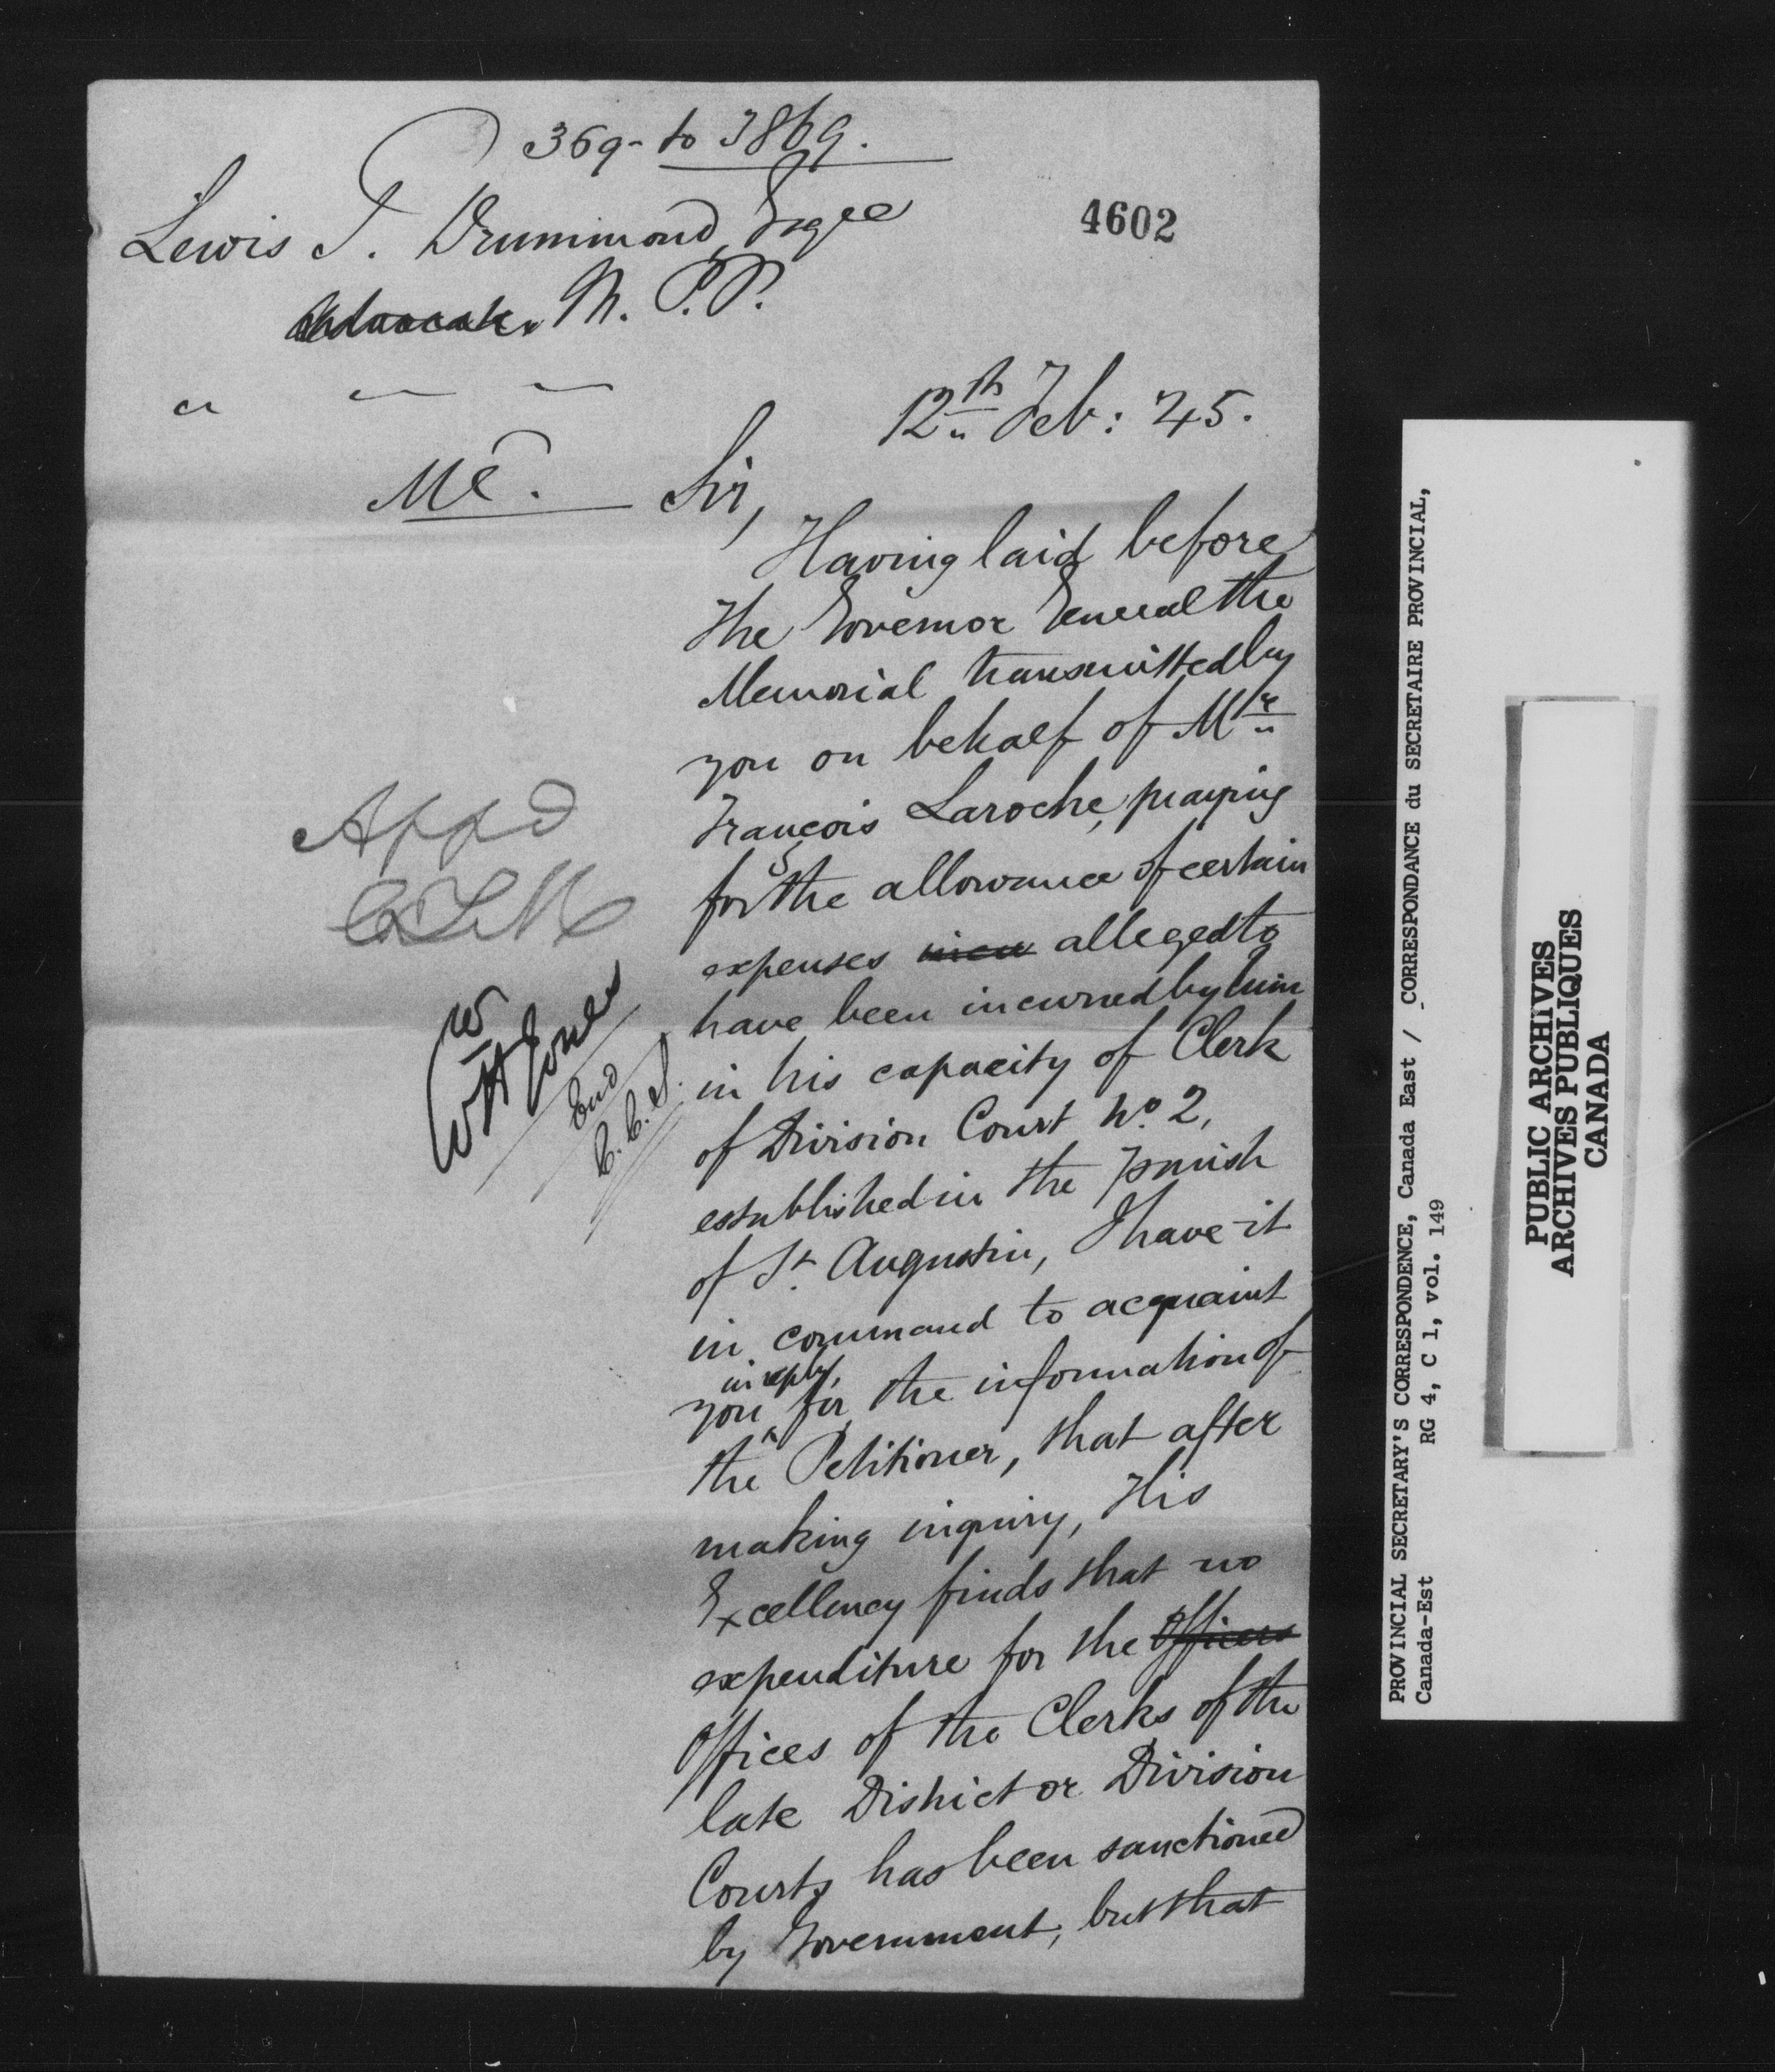 369 - to 3869.
4602
Lewis T. Drummond, Esqre
Advocate, M. P. P.
12th Feb: 45.
Me. Sir,
Having laid before
the Governor General the
Memorial transmitted by
you on behalf of Mr
François Laroche, praying
for the allowance of certain
expenses incu alleged to
have been incurred by him
in his capacity of Clerk
of Division Court No. 2,
established in the Parish
of St. Augustin, I have it
in command to acquaint
in reply,
you for the information of
the Petitioner, that after
making inquiry, His
Excellency finds that no
expenditure for the Officers
Offices of the Clerks of the
late District or Division
Courts has been sanctioned
by Government, but that
Appd
W H Jones
End
C. C. S.
PROVINCIAL SECRETARY'S CORRESPONDENCE, Canada East / CORRESPONDANCE du SECRETAIRE PROVINCIAL,
Canada-Est RG 4, C 1, vol. 149
PUBLIC ARCHIVES
ARCHIVES PUBLIQUES
CANADA